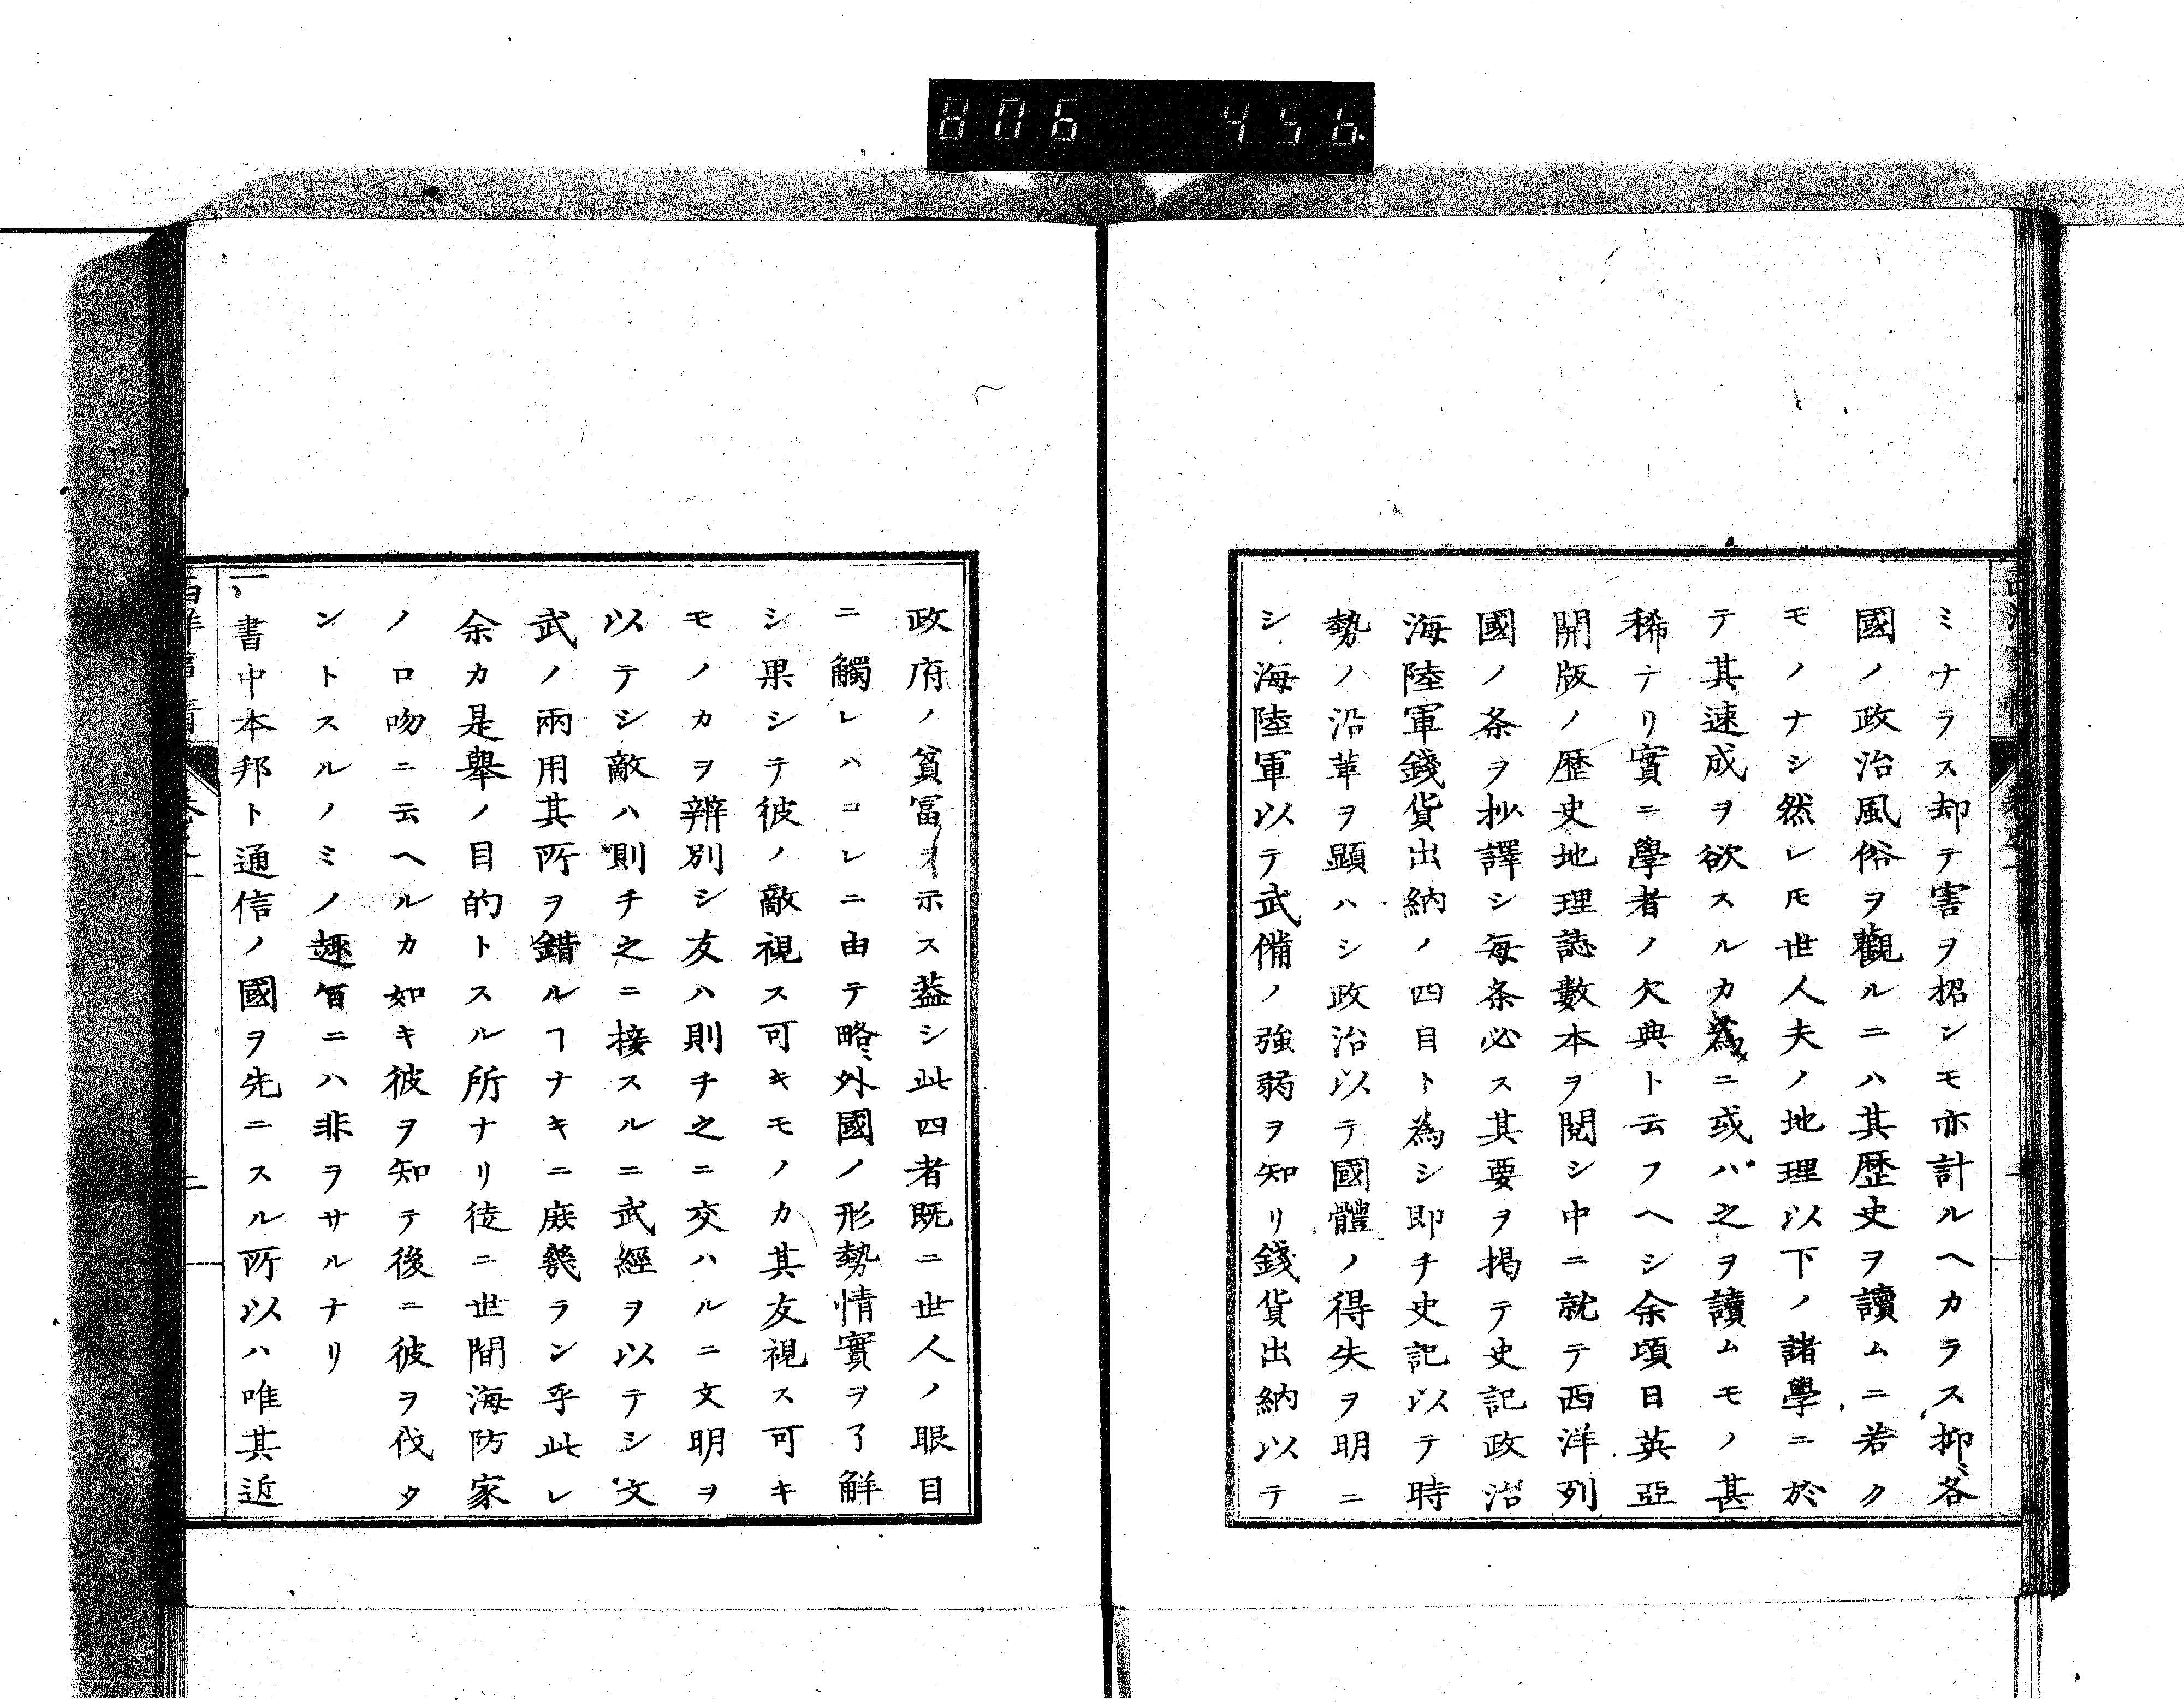 806 456
ミナラス却テ害ヲ招ンモ亦計ルヘカラス抑〻各
國ノ政治風俗ヲ觀ルニハ其歴史ヲ讀ムニ若ク
モノナシ然レ𪜈世人夫ノ地理以下ノ諸學ニ於
テ其速成ヲ欲スルカ為ニ或ハ之ヲ讀ムモノ甚
稀ナリ實ニ學者ノ欠典ト云フヘシ余頃日英亞
開版ノ歴史地理誌數本ヲ閲シ中ニ就テ西洋列
國ノ条ヲ抄譯シ毎条必ス其要ヲ掲テ史記政治
海陸軍錢貨出納ノ四目ト為シ即チ史記以テ時
勢ノ沿革ヲ顕ハシ政治以テ國體ノ得失ヲ明ニ
シ海陸軍以テ武備ノ強弱ヲ知リ錢貨出納以テ
政府ノ貧冨ヲ示ス葢シ此四者既ニ世人ノ眼目
ニ觸レハコレニ由テ略〻外國ノ形勢情實ヲ了解
シ果シテ彼ノ敵視ス可キモノカ其友視ス可キ
モノカヲ辨別シ友ハ則チ之ニ交ハルニ文明ヲ
以テシ敵ハ則チ之ニ接スルニ武經ヲ以テシ文
武ノ兩用其所ヲ錯ルヿナキニ庶幾ラン乎此レ
余カ是舉ノ目的トスル所ナリ徒ニ世間海防家
ノ口吻ニ云ヘルカ如キ彼ヲ知テ後ニ彼ヲ伐タ
ントスルノミノ趣旨ニハ非ラサルナリ
一、書中本邦ト通信ノ國ヲ先ニスル所以ハ唯其近